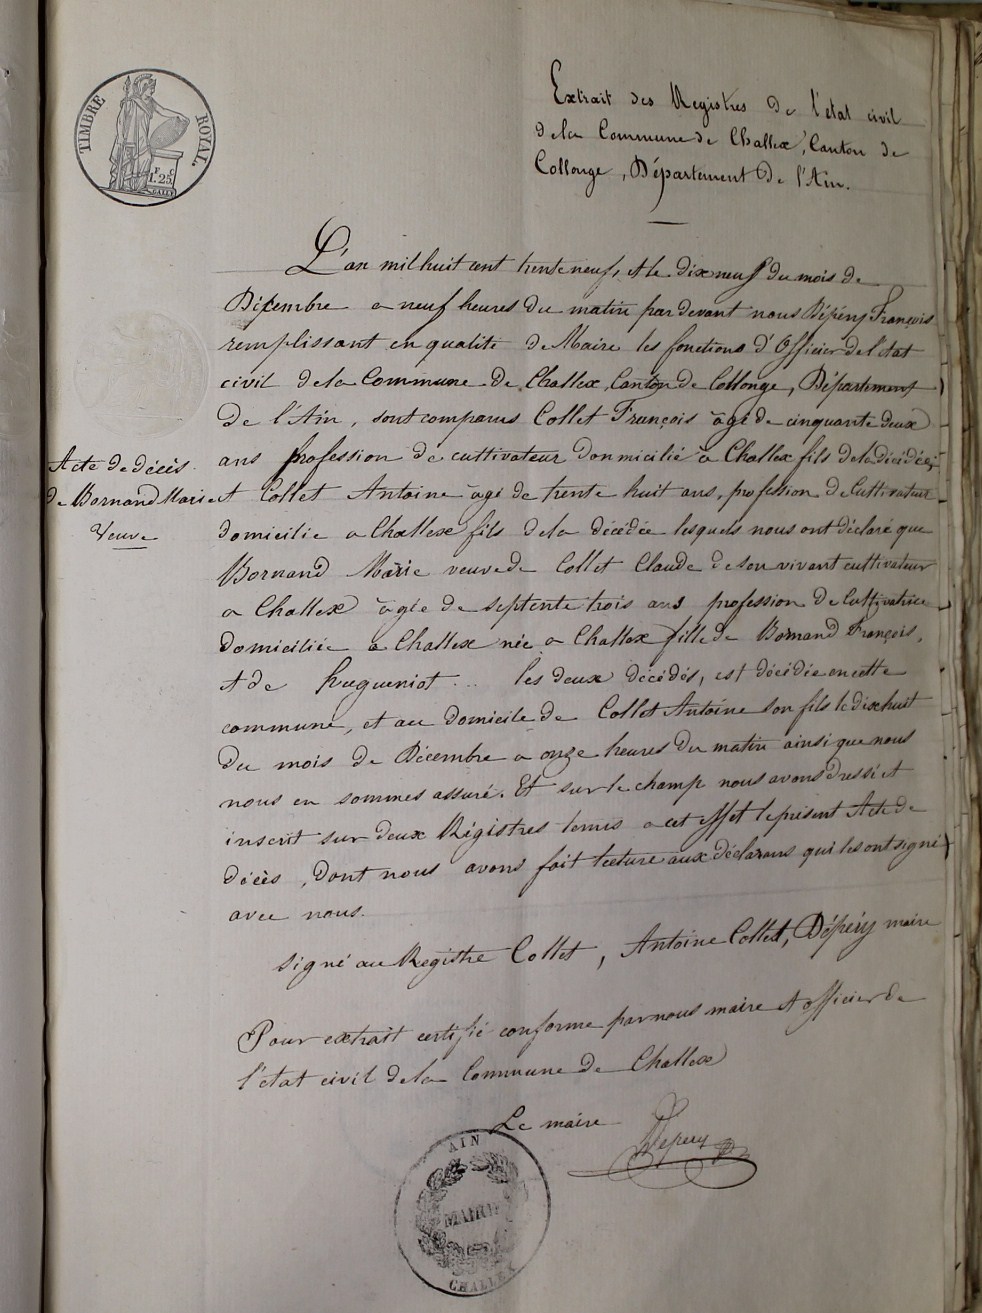 TIMBRE ROYAL
F. C.
1.25
Extrait des Registres de l'état civil
de la Commune de Challex, Canton de
Collonge, Département de l'Ain.
L'an mil huit cent trente neuf, et le dix neuf du mois de
Décembre a neuf heures du matin par devant nous Dépéry François
remplissant en qualité de Maire les fonctions d'Officier de l'état
civil de la Commune de Challex, Canton de Collonge, Département
de l'Ain, sont comparus Collet François âgé de cinquante deux
ans profession de cultivateur domicilié à Challex fils de la décédée,
Acte de décès
de Bornand Marie
Veuve
et Collet Antoine âgé de trente huit ans, profession de Cultivateur
domicilie a Challex fils de la décédée lesquels nous ont déclaré que
Bornand Marie veuve de Collet Claude de son vivant cultivateur
a Challex âgée de septente trois ans profession de Cultivatrice
domiciliée a Challex née a Challex fille de Bornand François,
et de Hugueniot ... les deux décédés, est décédée en cette
commune, et au domicile de Collet Antoine son fils le dix huit
du mois de Décembre a onze heures du matin ainsi que nous
nous en sommes assuré. Et sur le champ nous avons dressé et
inscrit sur deux Régistres tenus a cet effet le présent Acte de
décès, dont nous avons fait lecture aux déclarans qui les ont signé
avec nous.
signé au Registre Collet, Antoine Collet, Dépéry maire
Pour extrait certifié conforme par nous maire et officier de
l'état civil de la Commune de Challex
Le maire
Depery
AIN
MAIRIE
CHALLEX